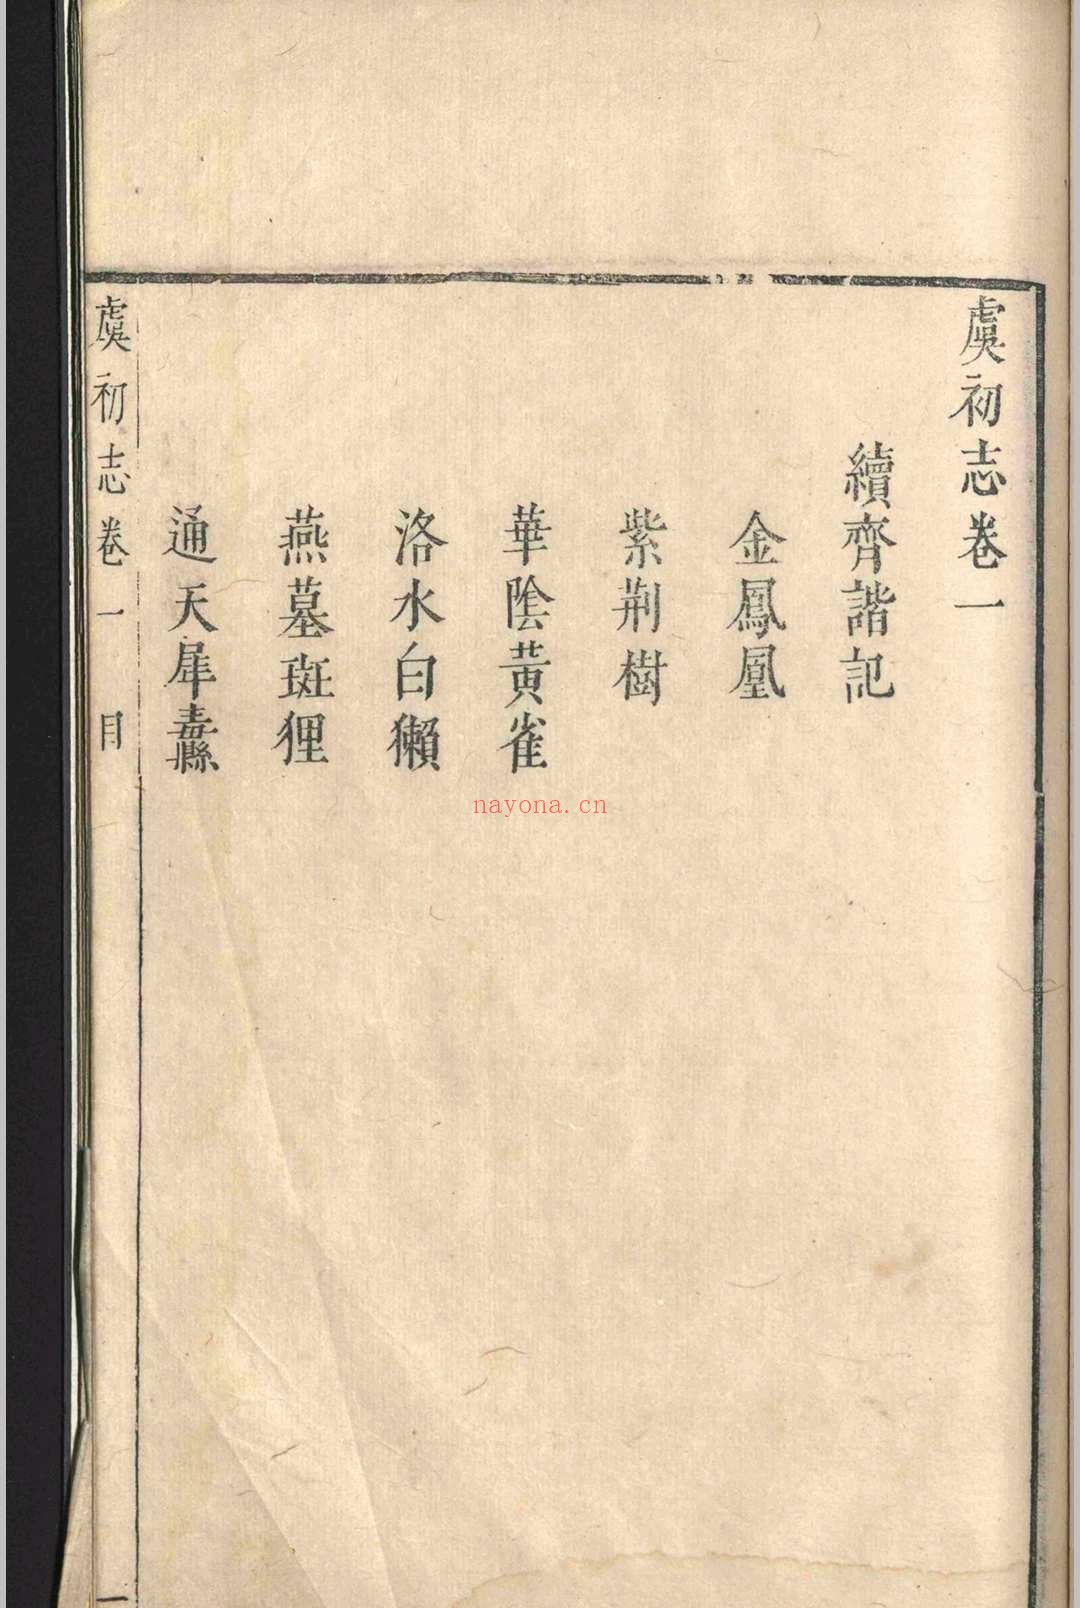 虞初志卷一
續齊諧記
金鳳凰
紫荆樹
華陰黃雀
洛水白獺
燕墓斑狸
通天犀纛
虞初志卷一 目 一
nayona.cn